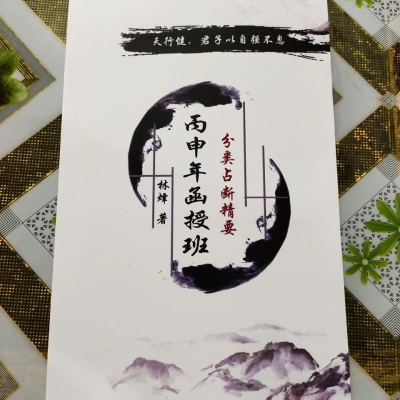 天行健，君子以自强不息
分类占断精要
丙申年函授班
林烽 著